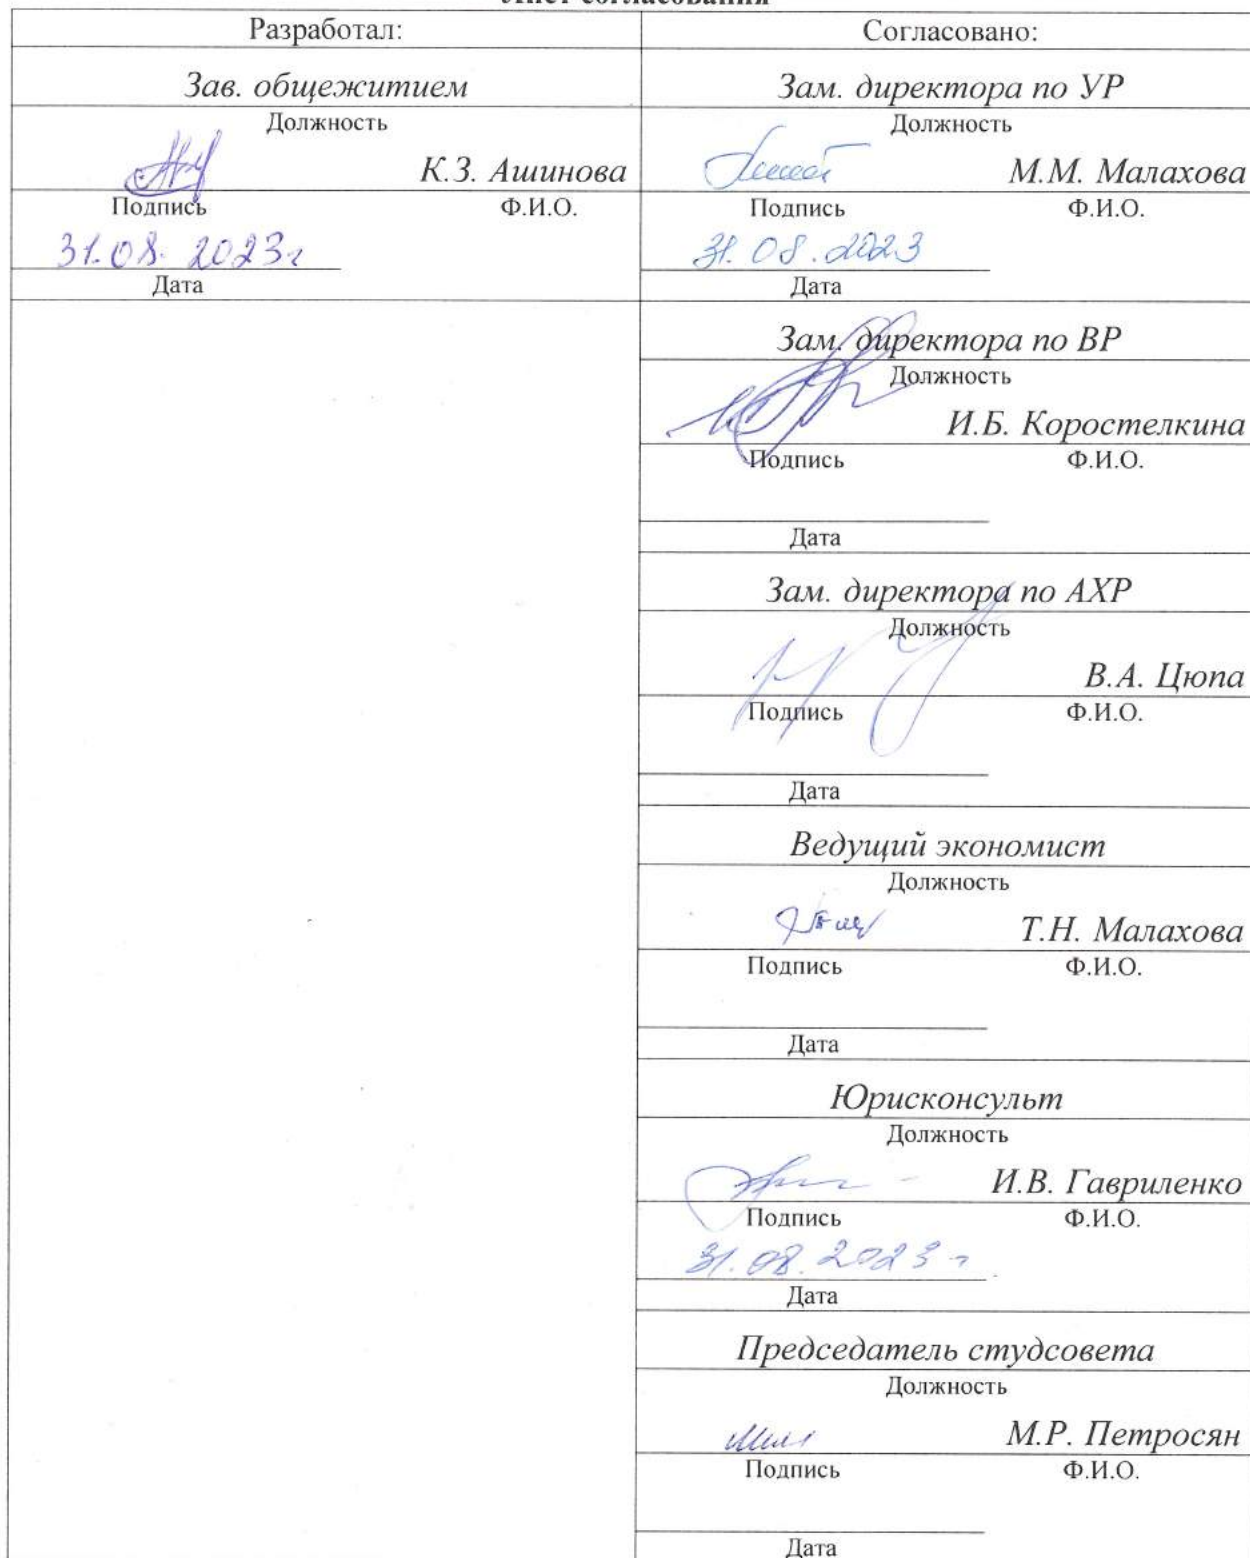 Лист согласования
Разработал:
Зав. общежитием
Должность
К.З. Ашинова
Подпись Ф.И.О.
31.08.2023г
Дата
Согласовано:
Зам. директора по УР
Должность
М.М. Малахова
Подпись Ф.И.О.
31.08.2023
Дата
Зам. директора по ВР
Должность
И.Б. Коростелкина
Подпись Ф.И.О.
Дата
Зам. директора по АХР
Должность
В.А. Цюпа
Подпись Ф.И.О.
Дата
Ведущий экономист
Должность
Т.Н. Малахова
Подпись Ф.И.О.
Дата
Юрисконсульт
Должность
И.В. Гавриленко
Подпись Ф.И.О.
31.08.2023г
Дата
Председатель студсовета
Должность
М.Р. Петросян
Подпись Ф.И.О.
Дата